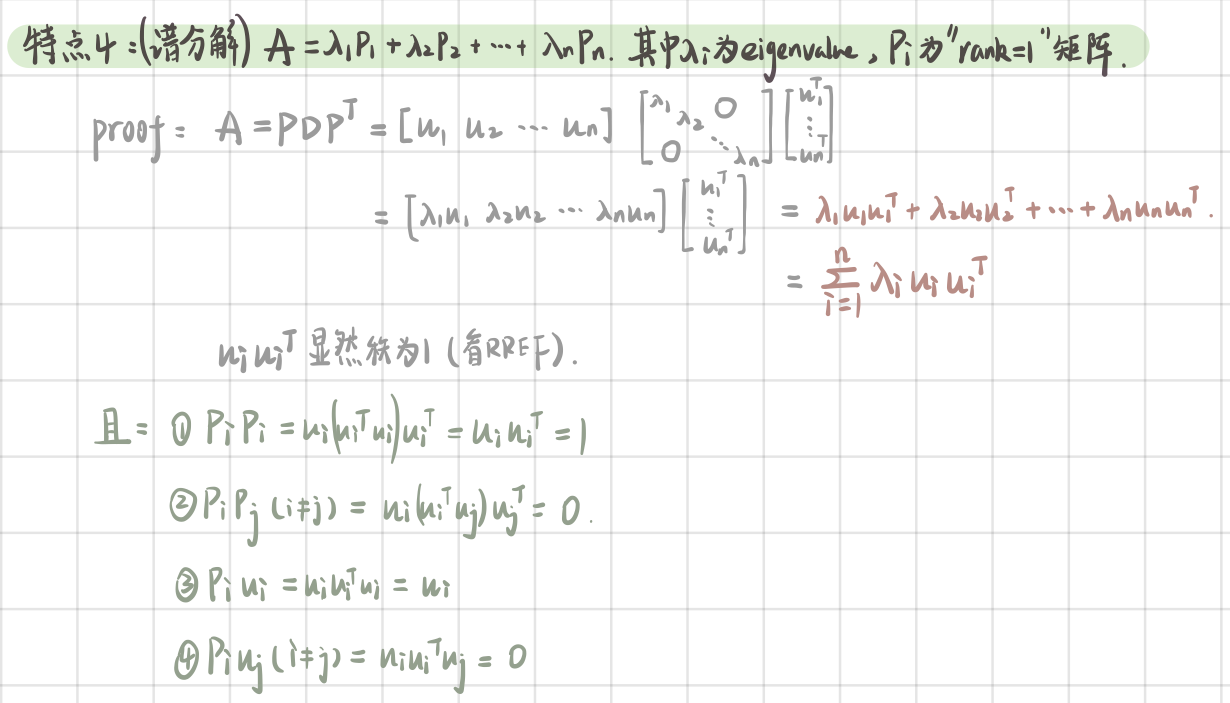 特点4:(谱分解) A = λ₁P₁ + λ₂P₂ + ⋯ + λₙPₙ. 其中λᵢ为eigenvalue, Pᵢ为"rank=1"矩阵.
proof: A = PDPᵀ = [u₁ u₂ ⋯ uₙ] [λ₁ λ₂ ⋱ λₙ 0 0] [u₁ᵀ ⋮ uₙᵀ]
= [λ₁u₁ λ₂u₂ ⋯ λₙuₙ] [u₁ᵀ ⋮ uₙᵀ] = λ₁u₁u₁ᵀ + λ₂u₂u₂ᵀ + ⋯ + λₙuₙuₙᵀ.
= ∑ᵢ₌₁ⁿ λᵢuᵢuᵢᵀ
uᵢuᵢᵀ 显然秩为1 (看RREF).
且: ① PᵢPᵢ = uᵢ(uᵢᵀuᵢ)uᵢᵀ = uᵢuᵢᵀ = 1
② PᵢPⱼ (i≠j) = uᵢ(uᵢᵀuⱼ)uⱼᵀ = 0.
③ Pᵢuᵢ = uᵢuᵢᵀuᵢ = uᵢ
④ Pᵢuⱼ (i≠j) = uᵢuᵢᵀuⱼ = 0